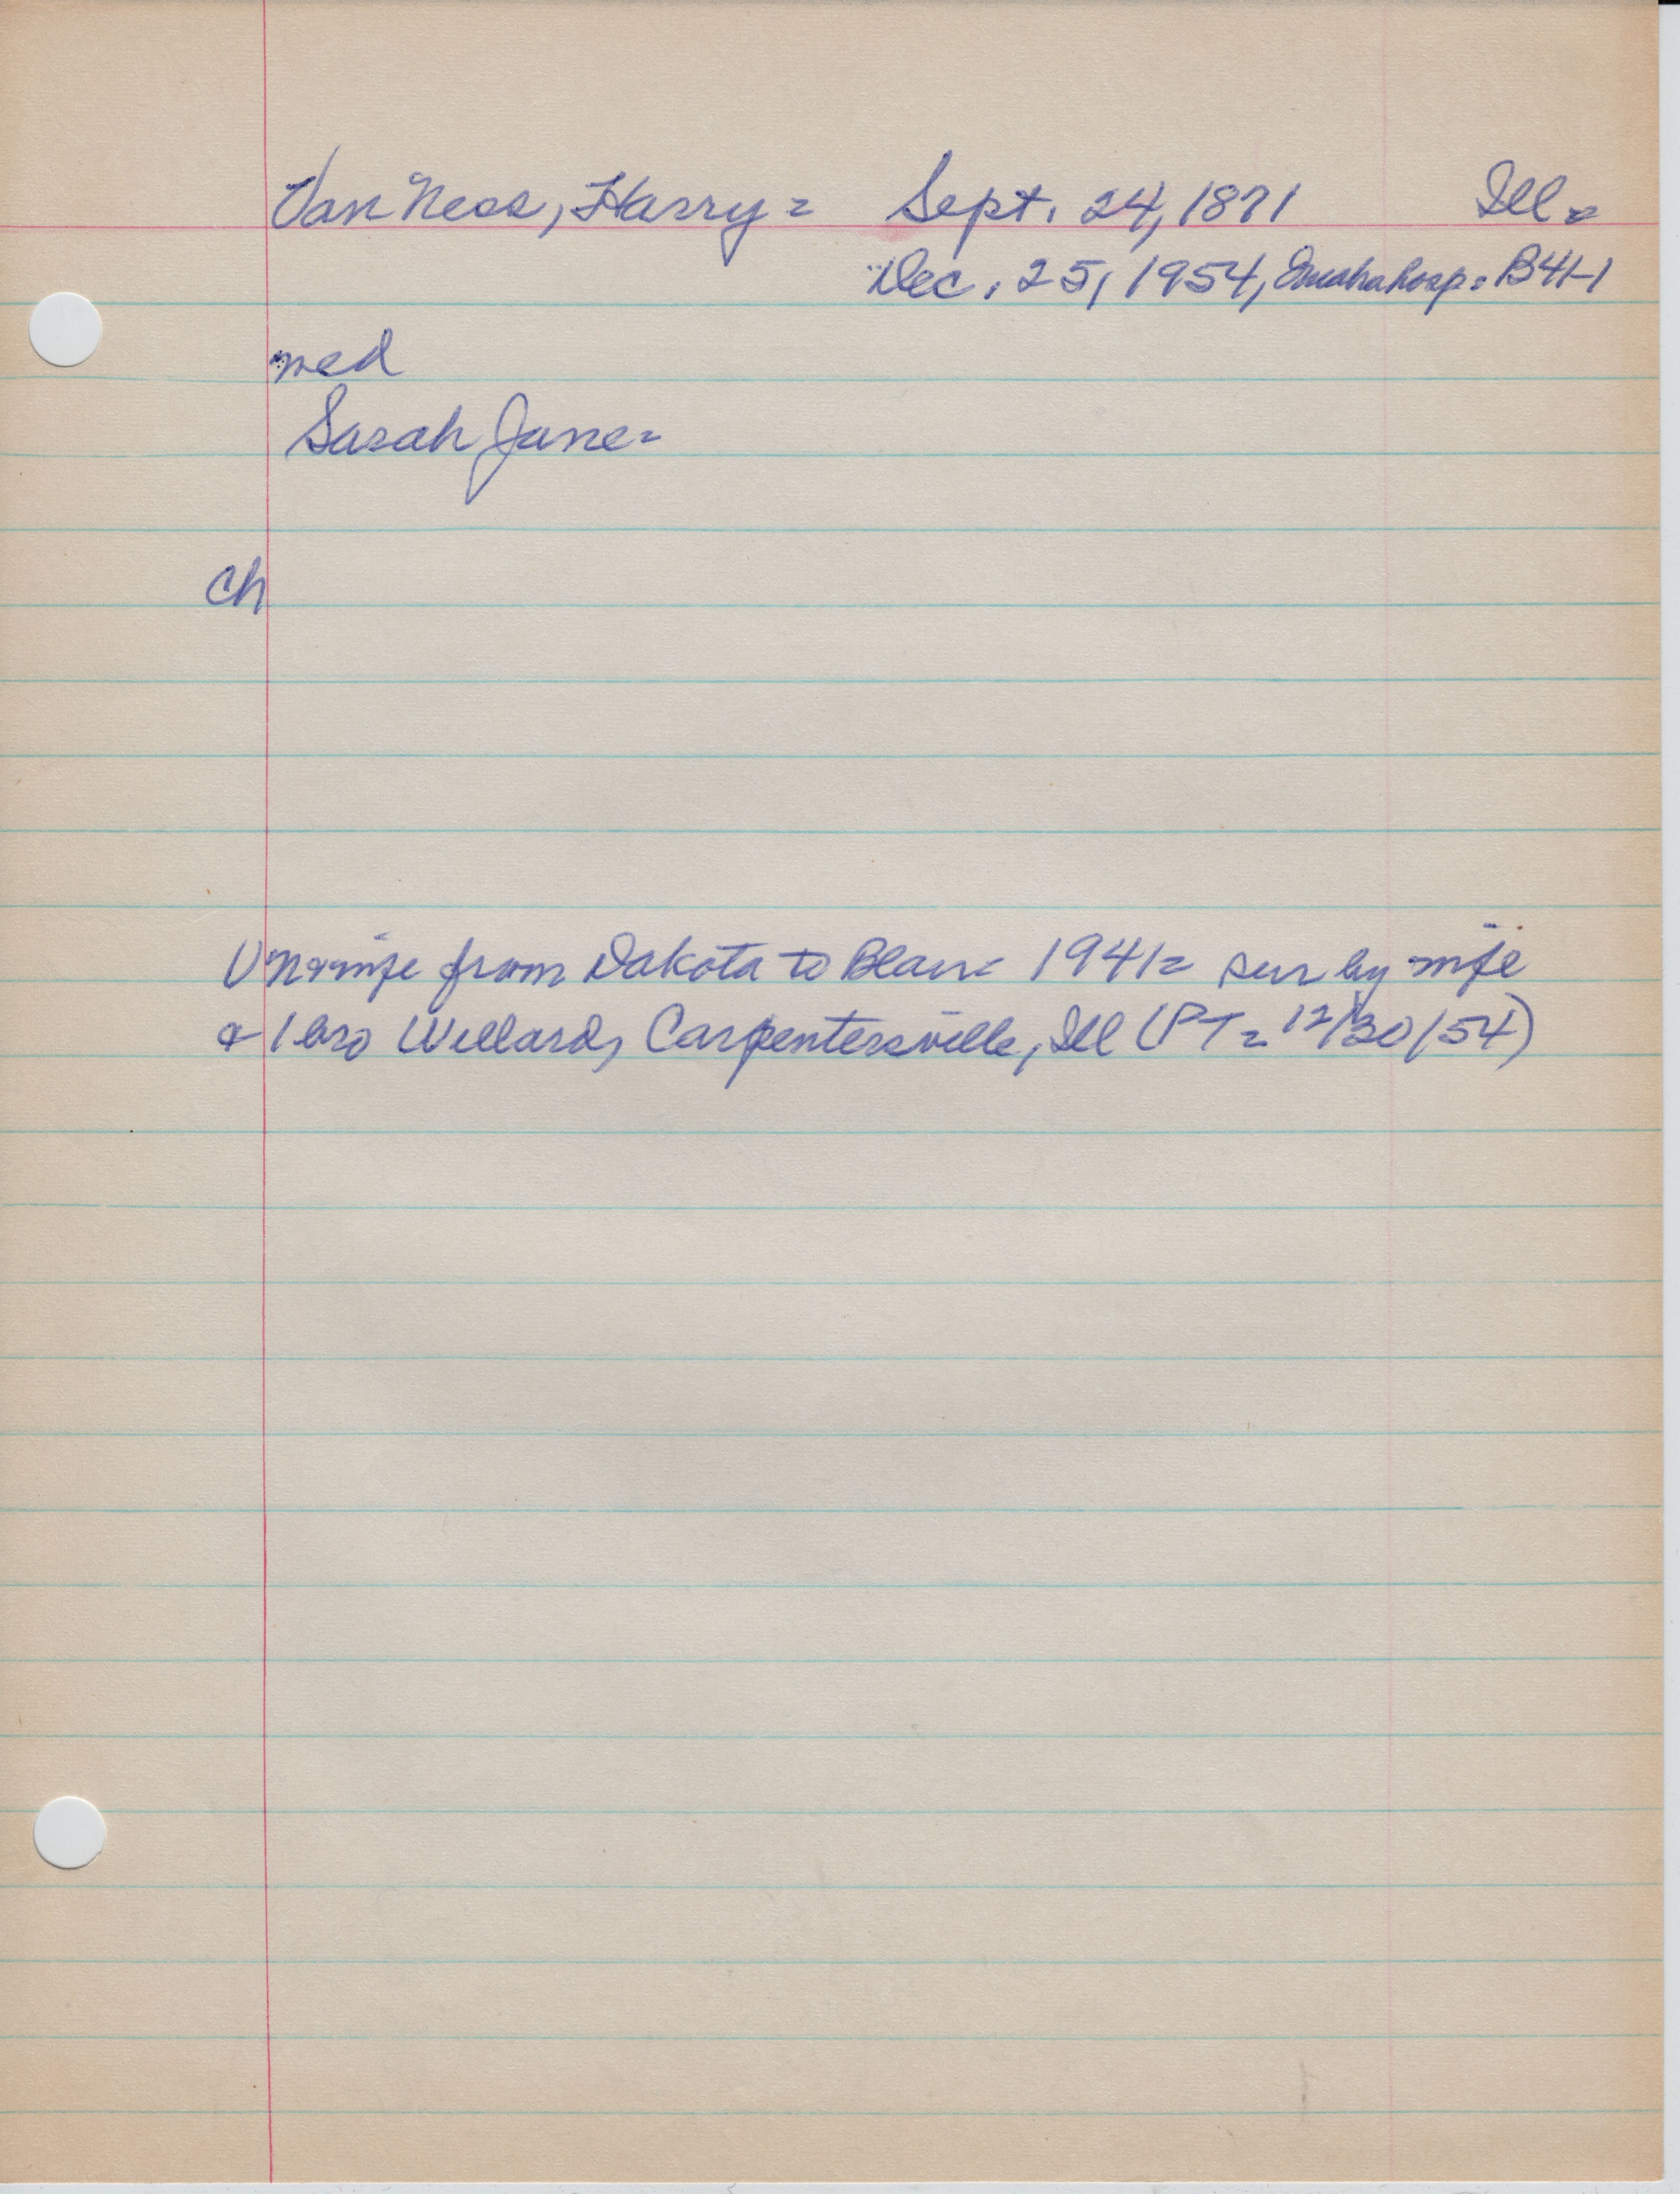 Van Ness, Harry = Sept. 24, 1871 Ill =
Dec. 25, 1954, Omaha hosp = B41-1
med
Sarah Jane =
Ch
VN & wife from Dakota to Blair 1941 = sur by wife
& 1 bro Willard, Carpentersville, Ill (PT = 12/30/54)